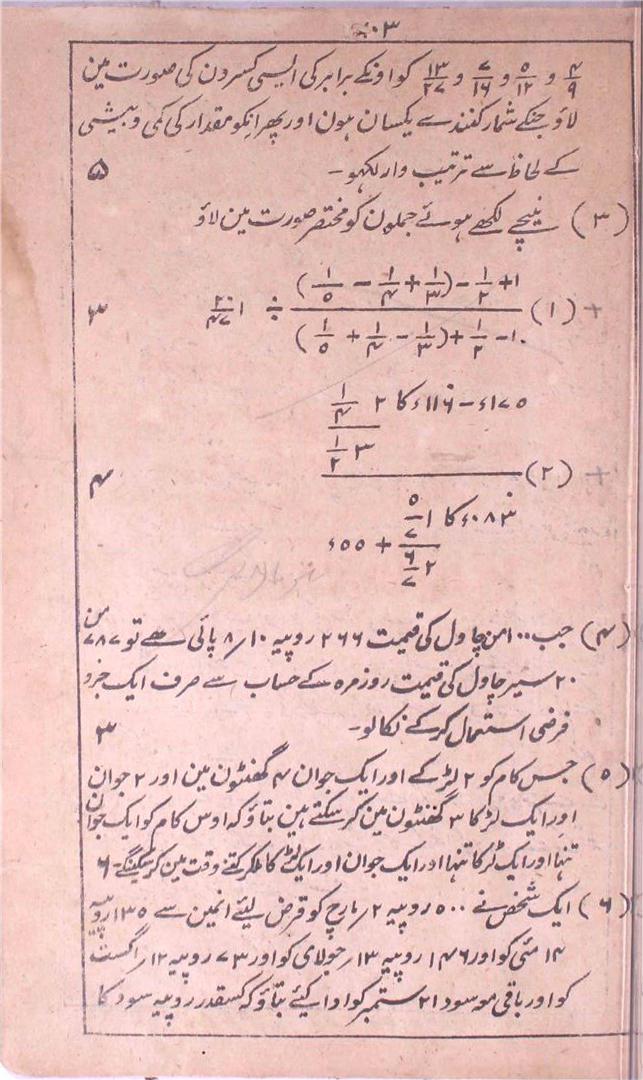 ۲۰۳
۴/۹ و ۵/۱۲ و ۷/۱۶ و ۱۳/۲۷ کو اونکے برابر کی ایسی کسردن کی صورت مین
لاؤ جنکے شمار کنندے یکسان ہون اور پھر انکو مقدار کی کمی و بیشی
کے لحاظ سے ترتیب وار لکھو۔ ۵
(۳) نیچے لکھے ہوئے جملون کو مختصر صورت مین لاؤ
(۱) ۱+۱/۲-(۱/۳+۱/۴-۱/۵) / ۱۰-۱/۲+(۱/۳-۱/۴+۱/۵) ÷ ۱ ۲۰/۴۷ ۳
۱۷۵ء-۱۱۶ء کا ۲ ۱/۴
۳ ۱/۲
(۲) ۴
۰۸۳ء کا ۱ ۵/۷
۲ ۶/۷ + ۵۵ء
(۴) جب ۱۰۰ من چاول کی قیمت ۲۶۶ روپیہ ۱۰/ ۸ پائی ہے تو ۷۸۷ من
۲۰ سیر چاول کی قیمت روزمرہ کے حساب سے صرف ایک جزو
فرضی استعمال کر کے نکالو۔ ۳
(۵) جس کام کو ۲ لڑکے اور ایک جوان ۴ گھنٹون مین اور ۲ جوان
اور ایک لڑکا ۳ گھنٹون مین کر سکتے ہین بتاؤ کہ اوس کام کو ایک جوان
تنہا اور ایک لڑکا تنہا اور ایک جوان اور ایک لڑکا ملکر کتنے وقت مین کر سکینگے۔ ۶
(۶) ایک شخص نے ۵۰۰ روپیہ ۲/ مارچ کو قرض لیئے انمین سے ۱۳۵ روپیہ
۱۴ مئی کو اور ۱۴۶ روپیہ ۱۳/ جولای کو اور ۷۳ روپیہ ۱۲/ اگست
کو اور باقی مہ سود ۲۱ ستمبر کو ادا کیئے بتاؤ کہ کسقدر روپیہ سود کا